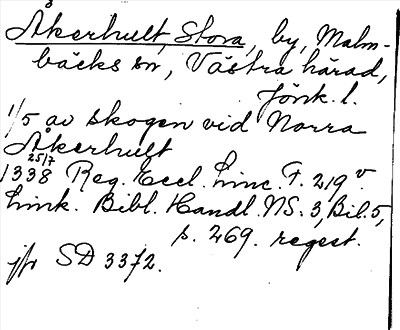 Åkerhult, Stora, by, Malm-
bäcks sn, Västra härad,
Jönk. l.
1/5 av skogen vid Norra
Åkerhult
1338 25/7 Reg. Eccl. Linc. F. 219 v.
Link. Bibl. Handl. NS. 3, Bil. 5,
s. 269. regest.
jfr SD 3372.